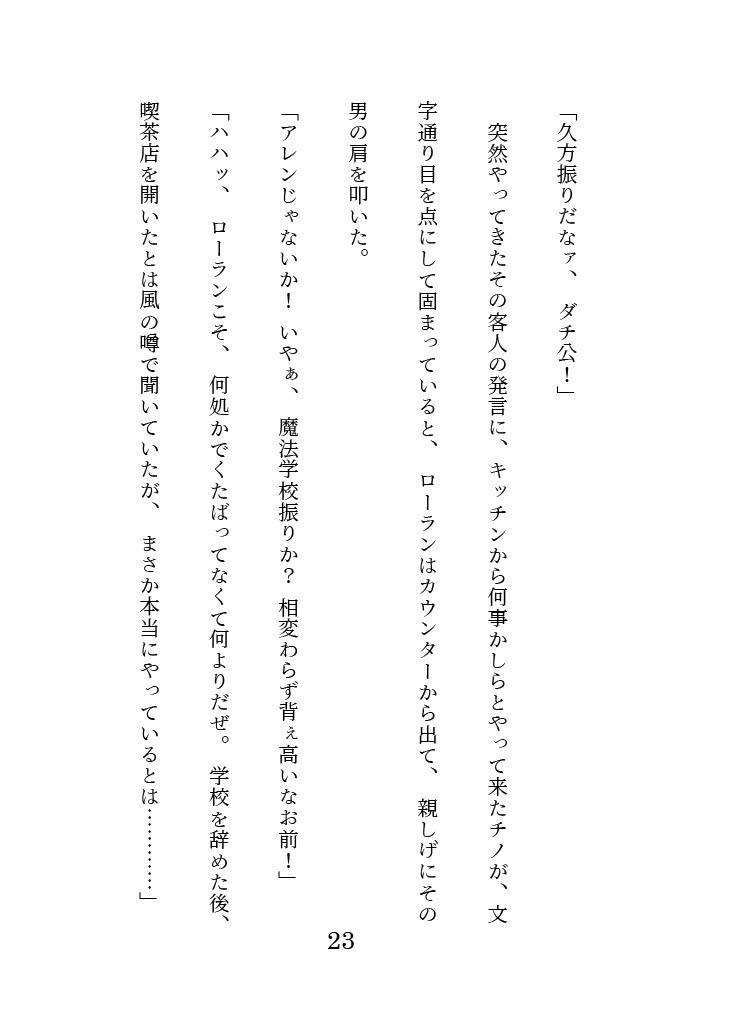 「久方振りだなァ、ダチ公！」
　突然やってきたその客人の発言に、キッチンから何事かしらとやって来たチノが、文
字通り目を点にして固まっていると、ローランはカウンターから出て、親しげにその
男の肩を叩いた。
「アレンじゃないか！いやぁ、魔法学校振りか？相変わらず背ぇ高いなお前！」
「ハハッ、ローランこそ、何処かでくたばってなくて何よりだぜ。学校を辞めた後、
喫茶店を開いたとは風の噂で聞いていたが、まさか本当にやっているとは…………」
23